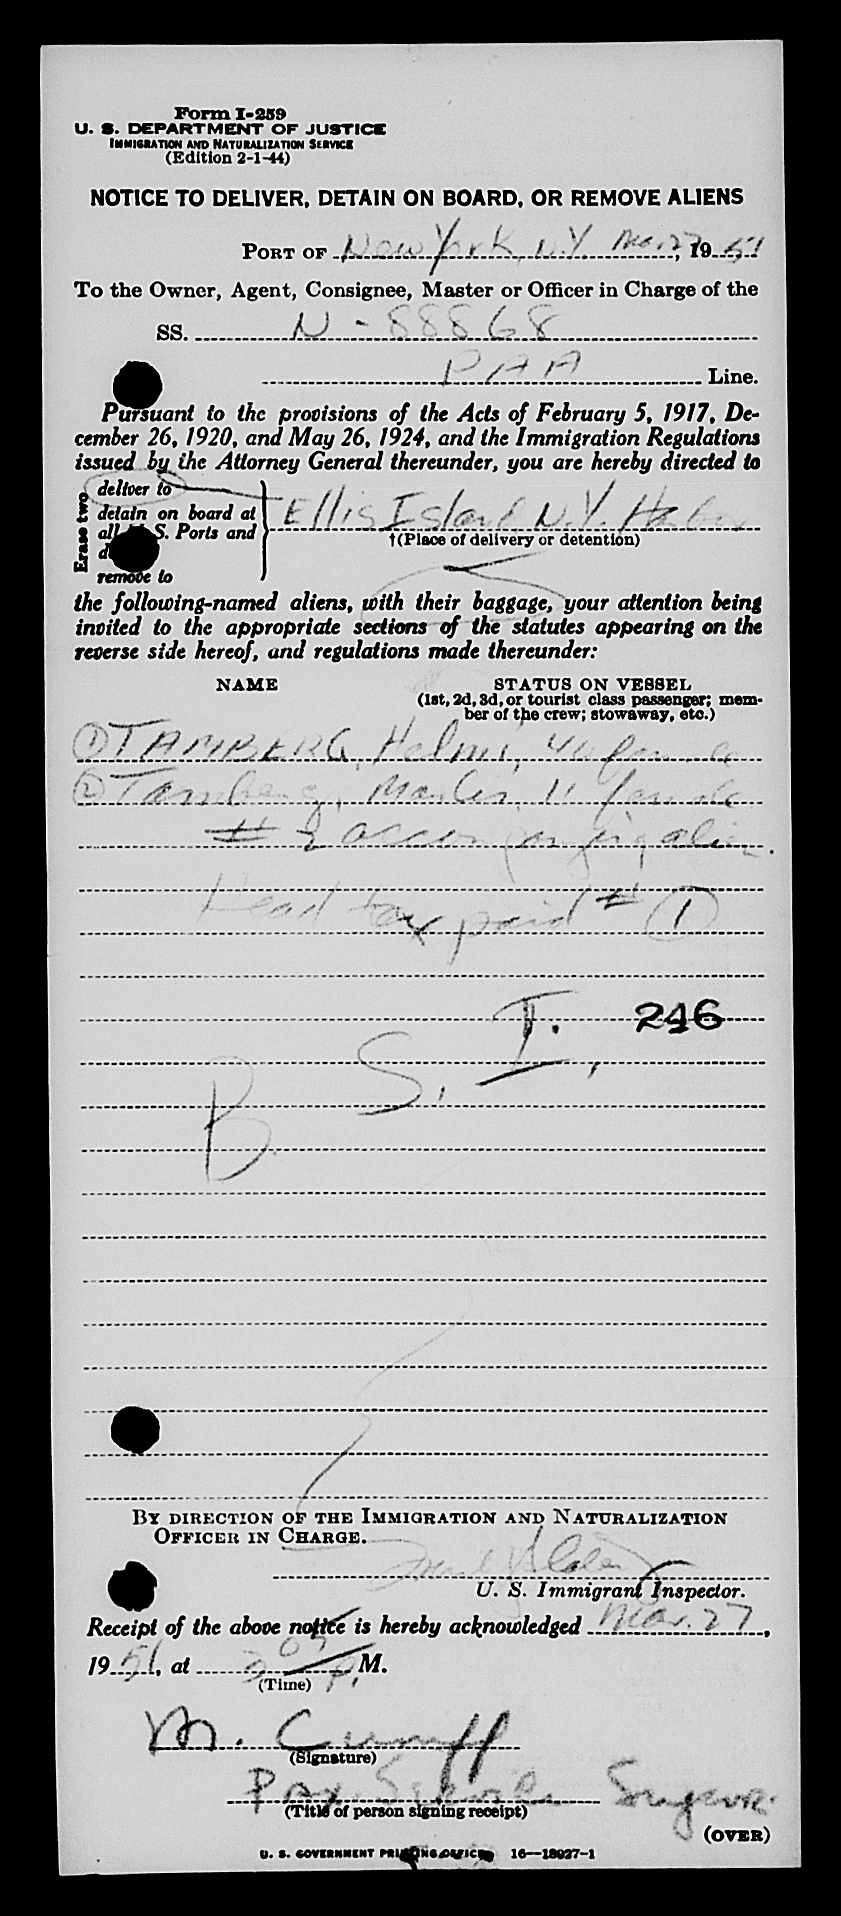 Form I-259
U. S. DEPARTMENT OF JUSTICE
IMMIGRATION AND NATURALIZATION SERVICE
(Edition 2-1-44)
NOTICE TO DELIVER, DETAIN ON BOARD, OR REMOVE ALIENS
PORT OF New York, N.Y. Mar. 27, 1951
To the Owner, Agent, Consignee, Master or Officer in Charge of the
SS. N-88868
PAA Line.
Pursuant to the provisions of the Acts of February 5, 1917, De-
cember 26, 1920, and May 26, 1924, and the Immigration Regulations
issued by the Attorney General thereunder, you are hereby directed to
Erase two
deliver to
detain on board at
all U. S. Ports and
remove to
Ellis Island N.Y. Harbor
†(Place of delivery or detention)
the following-named aliens, with their baggage, your attention being
invited to the appropriate sections of the statutes appearing on the
reverse side hereof, and regulations made thereunder:
NAME
STATUS ON VESSEL
(1st, 2d, 3d, or tourist class passenger; mem-
ber of the crew; stowaway, etc.)
① TAMBERG, Helmi, 40 female
② Tamberg, 11 female
# 2 accompanying alien.
Head tax paid # ①
246
B. S. I.
BY DIRECTION OF THE IMMIGRATION AND NATURALIZATION
OFFICER IN CHARGE.
U. S. Immigrant Inspector.
Receipt of the above notice is hereby acknowledged Mar. 27,
1951, at 3 05 P. M.
(Time)
M. Cunniff
(Signature)
Pax. Service
(Title of person signing receipt)
(OVER)
U. S. GOVERNMENT PRINTING OFFICE 16—18927-1